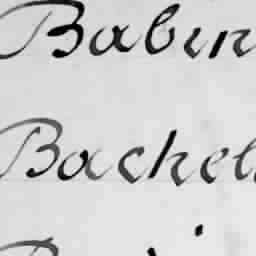 Babin
Bachel